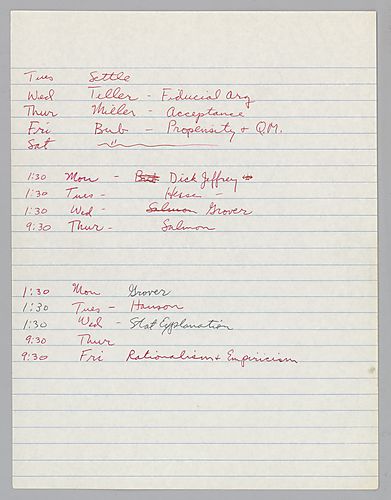 Tues Settle
Wed Teller - Fiducial Arg
Thur Miller - Acceptance
Fri Bub - Propensity + QM.
Sat - " -
1:30 Mon - Bub Dick Jeffrey
1:30 Tues - Hesse -
1:30 Wed - Salmon Grover
9:30 Thur - Salmon
1:30 Mon Grover
1:30 Tues - Hanson
1:30 Wed - Stat Explanation
9:30 Thur
9:30 Fri Rationalism + Empiricism